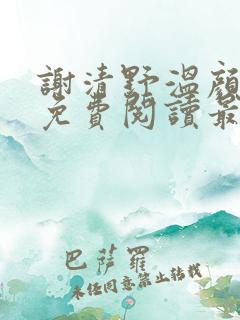 謝清野溫顏
免費閱讀最
巴薩羅
未經同意禁止轉載